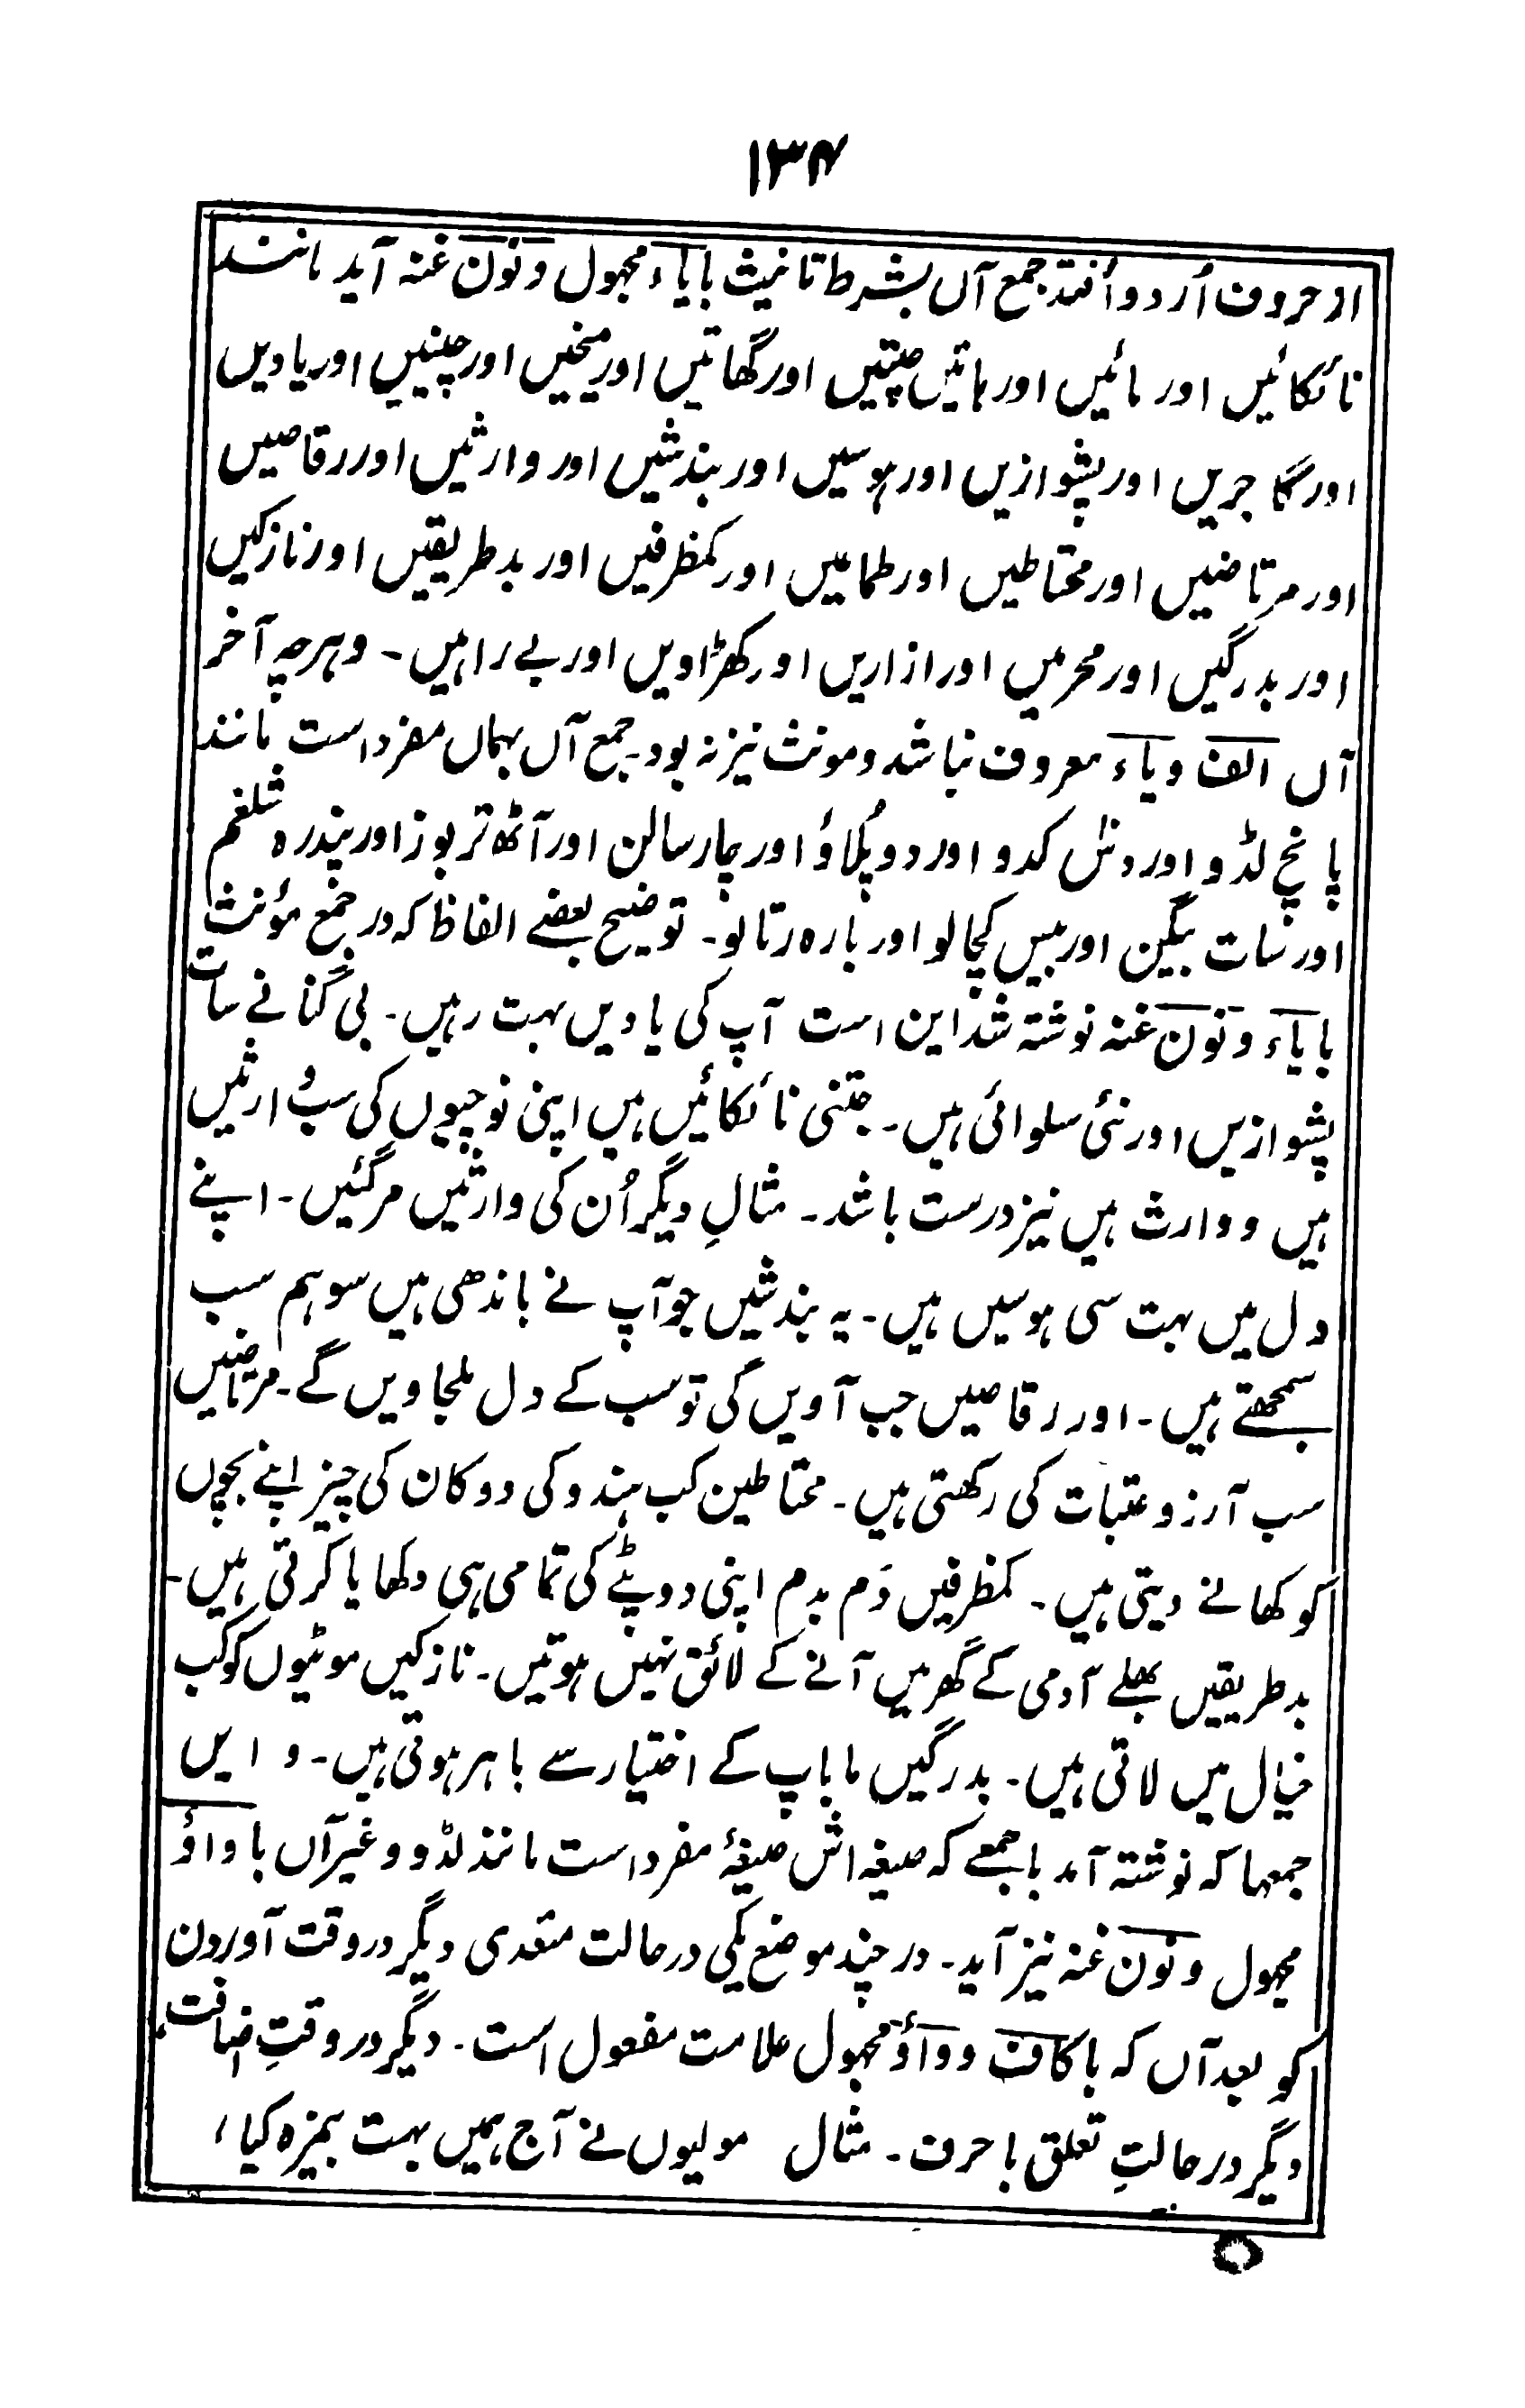 ۱۳۴
از حروف اُردو اُفتد جمع آں بشرط تانیث بایاء مجہول و نون غنہ آید مانند
نائکائیں اور مائیں اور باتیں چپتیں اور گھاتیں اور میخیں اور چنیپں اور یادیں
اور گاجریں اور پشوازیں اور ہوسیں اور بندشیں اور وارثیں اور رقاصیں
اور مرتاضیں اور محتاطیں اور طماعیں اور کمظرفیں اور بد طریقیں اور نازکیں
اور بدرگیں اور محرمیں اور ازاریں اور کھڑاویں اور بے راہیں۔ و ہرچہ آخر
آں الف و یاء معروف نباشد و مونث نیز نہ بود۔ جمع آں بہماں مفرد است مانند
پانچ لڈو اور دس کدو اور دو پُلاؤ اور چار سالن اور آٹھ تربوز اور پندرہ شلغم
اور سات بیگن اور بیس کچالو اور بارہ رتالو۔ توضیح بعضے الفاظ کہ در جمع مؤنث
بایاء و نون غنہ نوشتہ شد این است آپ کی یادیں بہت رہیں۔ بی گنا نے سات
پشوازیں اور نئی سلوائی ہیں۔ جتنی نائکائیں ہیں اپنی نوچیوں کی سب وارثیں
ہیں و وارث ہیں نیز درست باشد۔ مثالِ دیگر اُن کی وارثیں مرگئیں۔ اپنے
دل میں بہت سی ہوسیں ہیں۔ یہ بندشیں جو آپ نے باندھی ہیں سو ہم سب
سمجھتے ہیں۔ اور رقاصیں جب آویں گی تو سب کے دل ملجاویں گے۔ مرتاضیں
سب آرزو عتبات کی رکھتی ہیں۔ محتاطین کب ہندو کی دوکان کی چیز اپنے بچوں
کو کھانے دیتی ہیں۔ کمظرفیں دَم بدم اپنی دوپٹے کی تمامی ہی دکھایا کرتی ہیں۔
بد طریقیں بھلے آدمی کے گھر میں آنے کے لائق نہیں ہوتیں۔ نازکیں موٹیوں کو کب
خیال میں لاتی ہیں۔ بدرگیں ما باپ کے اختیار سے باہر ہوتی ہیں۔ و ایں
جمعہا کہ نوشتہ آمد باجمعے کہ صیغہ اش صیغۂ مفرد است مانند لڈو و غیر آں با واؤ
مجہول و نون غنہ نیز آید۔ در چند موضع یکی در حالت متعدی دیگر در وقت آوردن
کو بعد آں کہ با کاف و واؤ مجہول علامت مفعول است۔ دیگر در وقتِ اضافت
دیگر در حالتِ تعلق با حرف۔ مثال مولیوں نے آج ہمیں بہت بیمزہ کیا،